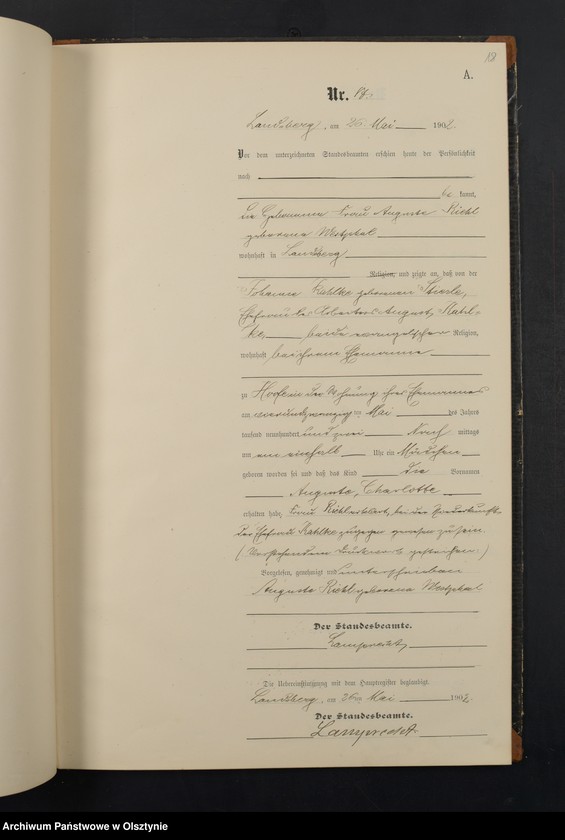 A.
Nr.
Landsberg, am 26ten Mai 1902.
Vor dem unterzeichneten Standesbeamten erschien heute der Persönlichkeit
nach
be kannt,
die Hebamme Frau Auguste Riehl
geborene Westphal
wohnhaft in Landsberg
Religion, und zeigte an, daß von der
Johanna Kahlke geborenen
Ehefrau des Arbeiters August Kahl-
ke, beide evangelischer Religion,
wohnhaft bei ihrem Ehemanne
zu Hoofe in der Wohnung ihres Ehemannes
am vierundzwanzigten Mai des Jahres
tausend neunhundert und zwei Nach mittags
um ein einhalb Uhr ein Mädchen
geboren worden sei und daß das Kind die Vornamen
Auguste, Charlotte
erhalten habe. Frau Riehl erklärt, bei der Niederkunft
der Ehefrau Kahlke zugegen gewesen zu sein.
(Vorstehend Druckwort gestrichen.)
Vorgelesen, genehmigt und unterschrieben
Auguste Riehl geborene Westphal
Der Standesbeamte.
Lamprecht
Die Uebereinstimmung mit dem Hauptregister beglaubigt.
Landsberg, am 26ten Mai 1902.
Der Standesbeamte.
Lamprecht
Archiwum Państwowe w Olsztynie